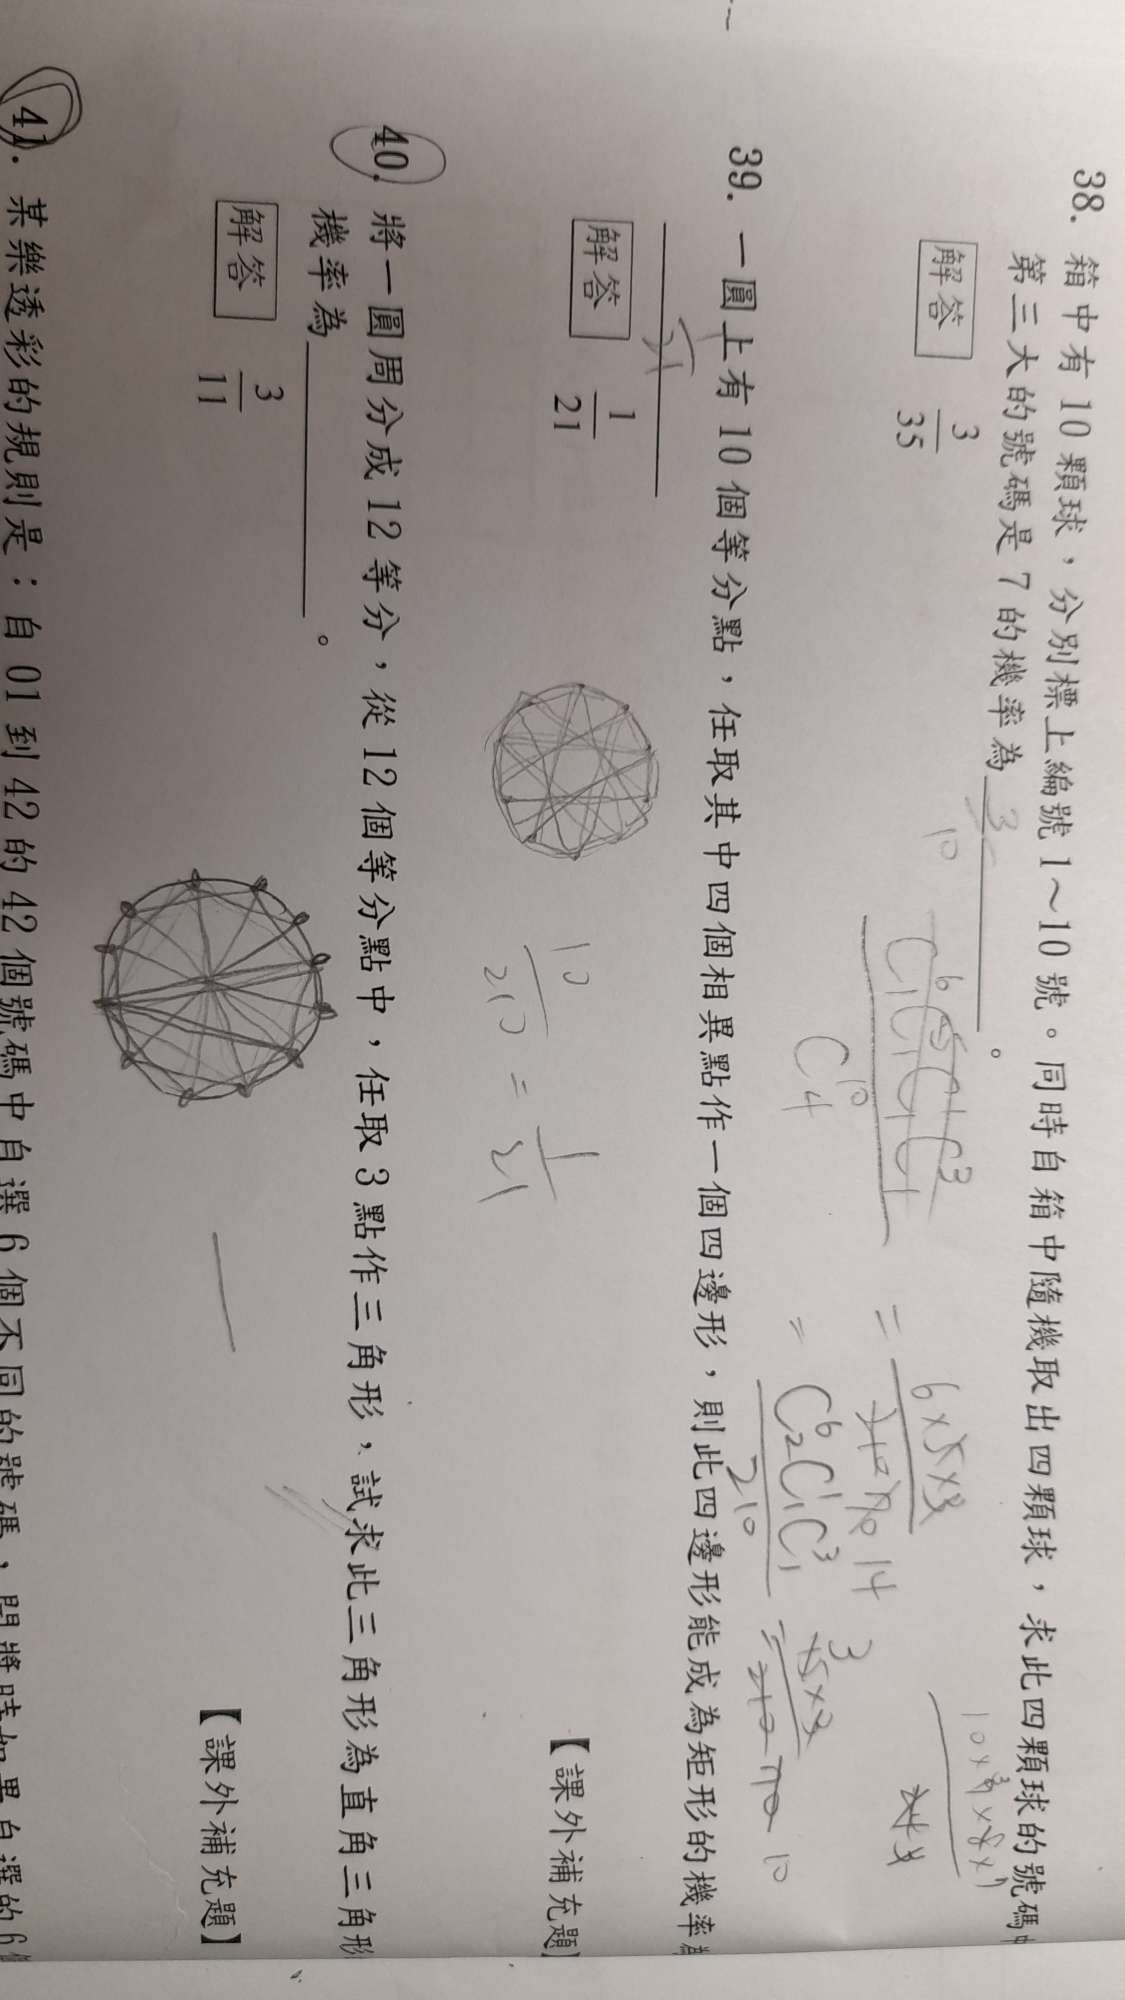 38. 箱中有 10 顆球，分別標上編號 1～10 號。同時自箱中隨機取出四顆球，求此四顆球的號碼中
第三大的號碼是 7 的機率為 3 。
解答 3/35
10
C₁⁶C₁⁵C₁¹C₁³ / C₄¹⁰ = 6×5×3
= C₂⁶C₁¹C₁³ / 210 =
39. 一圓上有 10 個等分點，任取其中四個相異點作一個四邊形，則此四邊形能成為矩形的機率為
1/21
解答 1/21
10/210 = 1/21
【課外補充題】
40. 將一圓周分成 12 等分，從 12 個等分點中，任取 3 點作三角形，試求此三角形為直角三角形
機率為 。
解答 3/11
【課外補充題】
41. 某樂透彩的規則是：自 01 到 42 的 42 個號碼中自選 6 個不同的號碼，開將時如果自選的 6 個